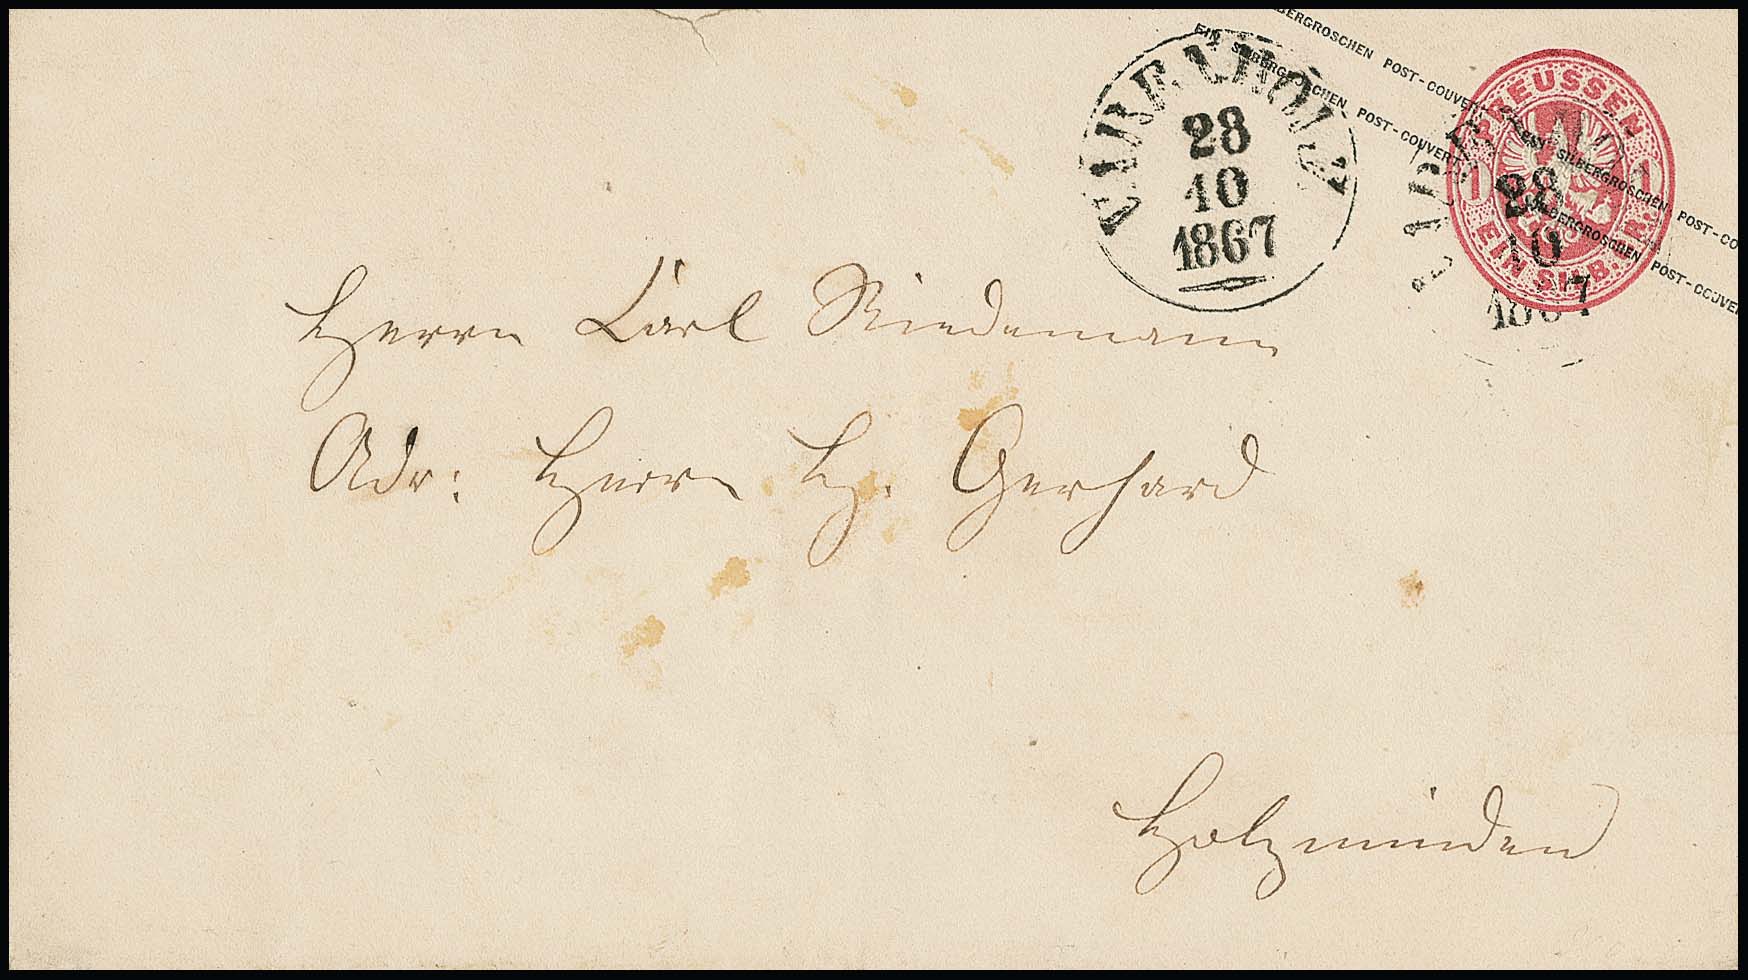 BERGROSCHEN POST-COUVERT EIN SILBERGROSCHEN POST-CO
EIN SILBERGROSCHEN POST-COUVERT EIN SILBERGROSCHEN POST-COUVE
28
10
1867
PREUSSEN
1 1
EIN SILB. GR.
28
10
1867
Herrn Carl Riedemann
Adr: Herrn H. Gerhard
Holzminden